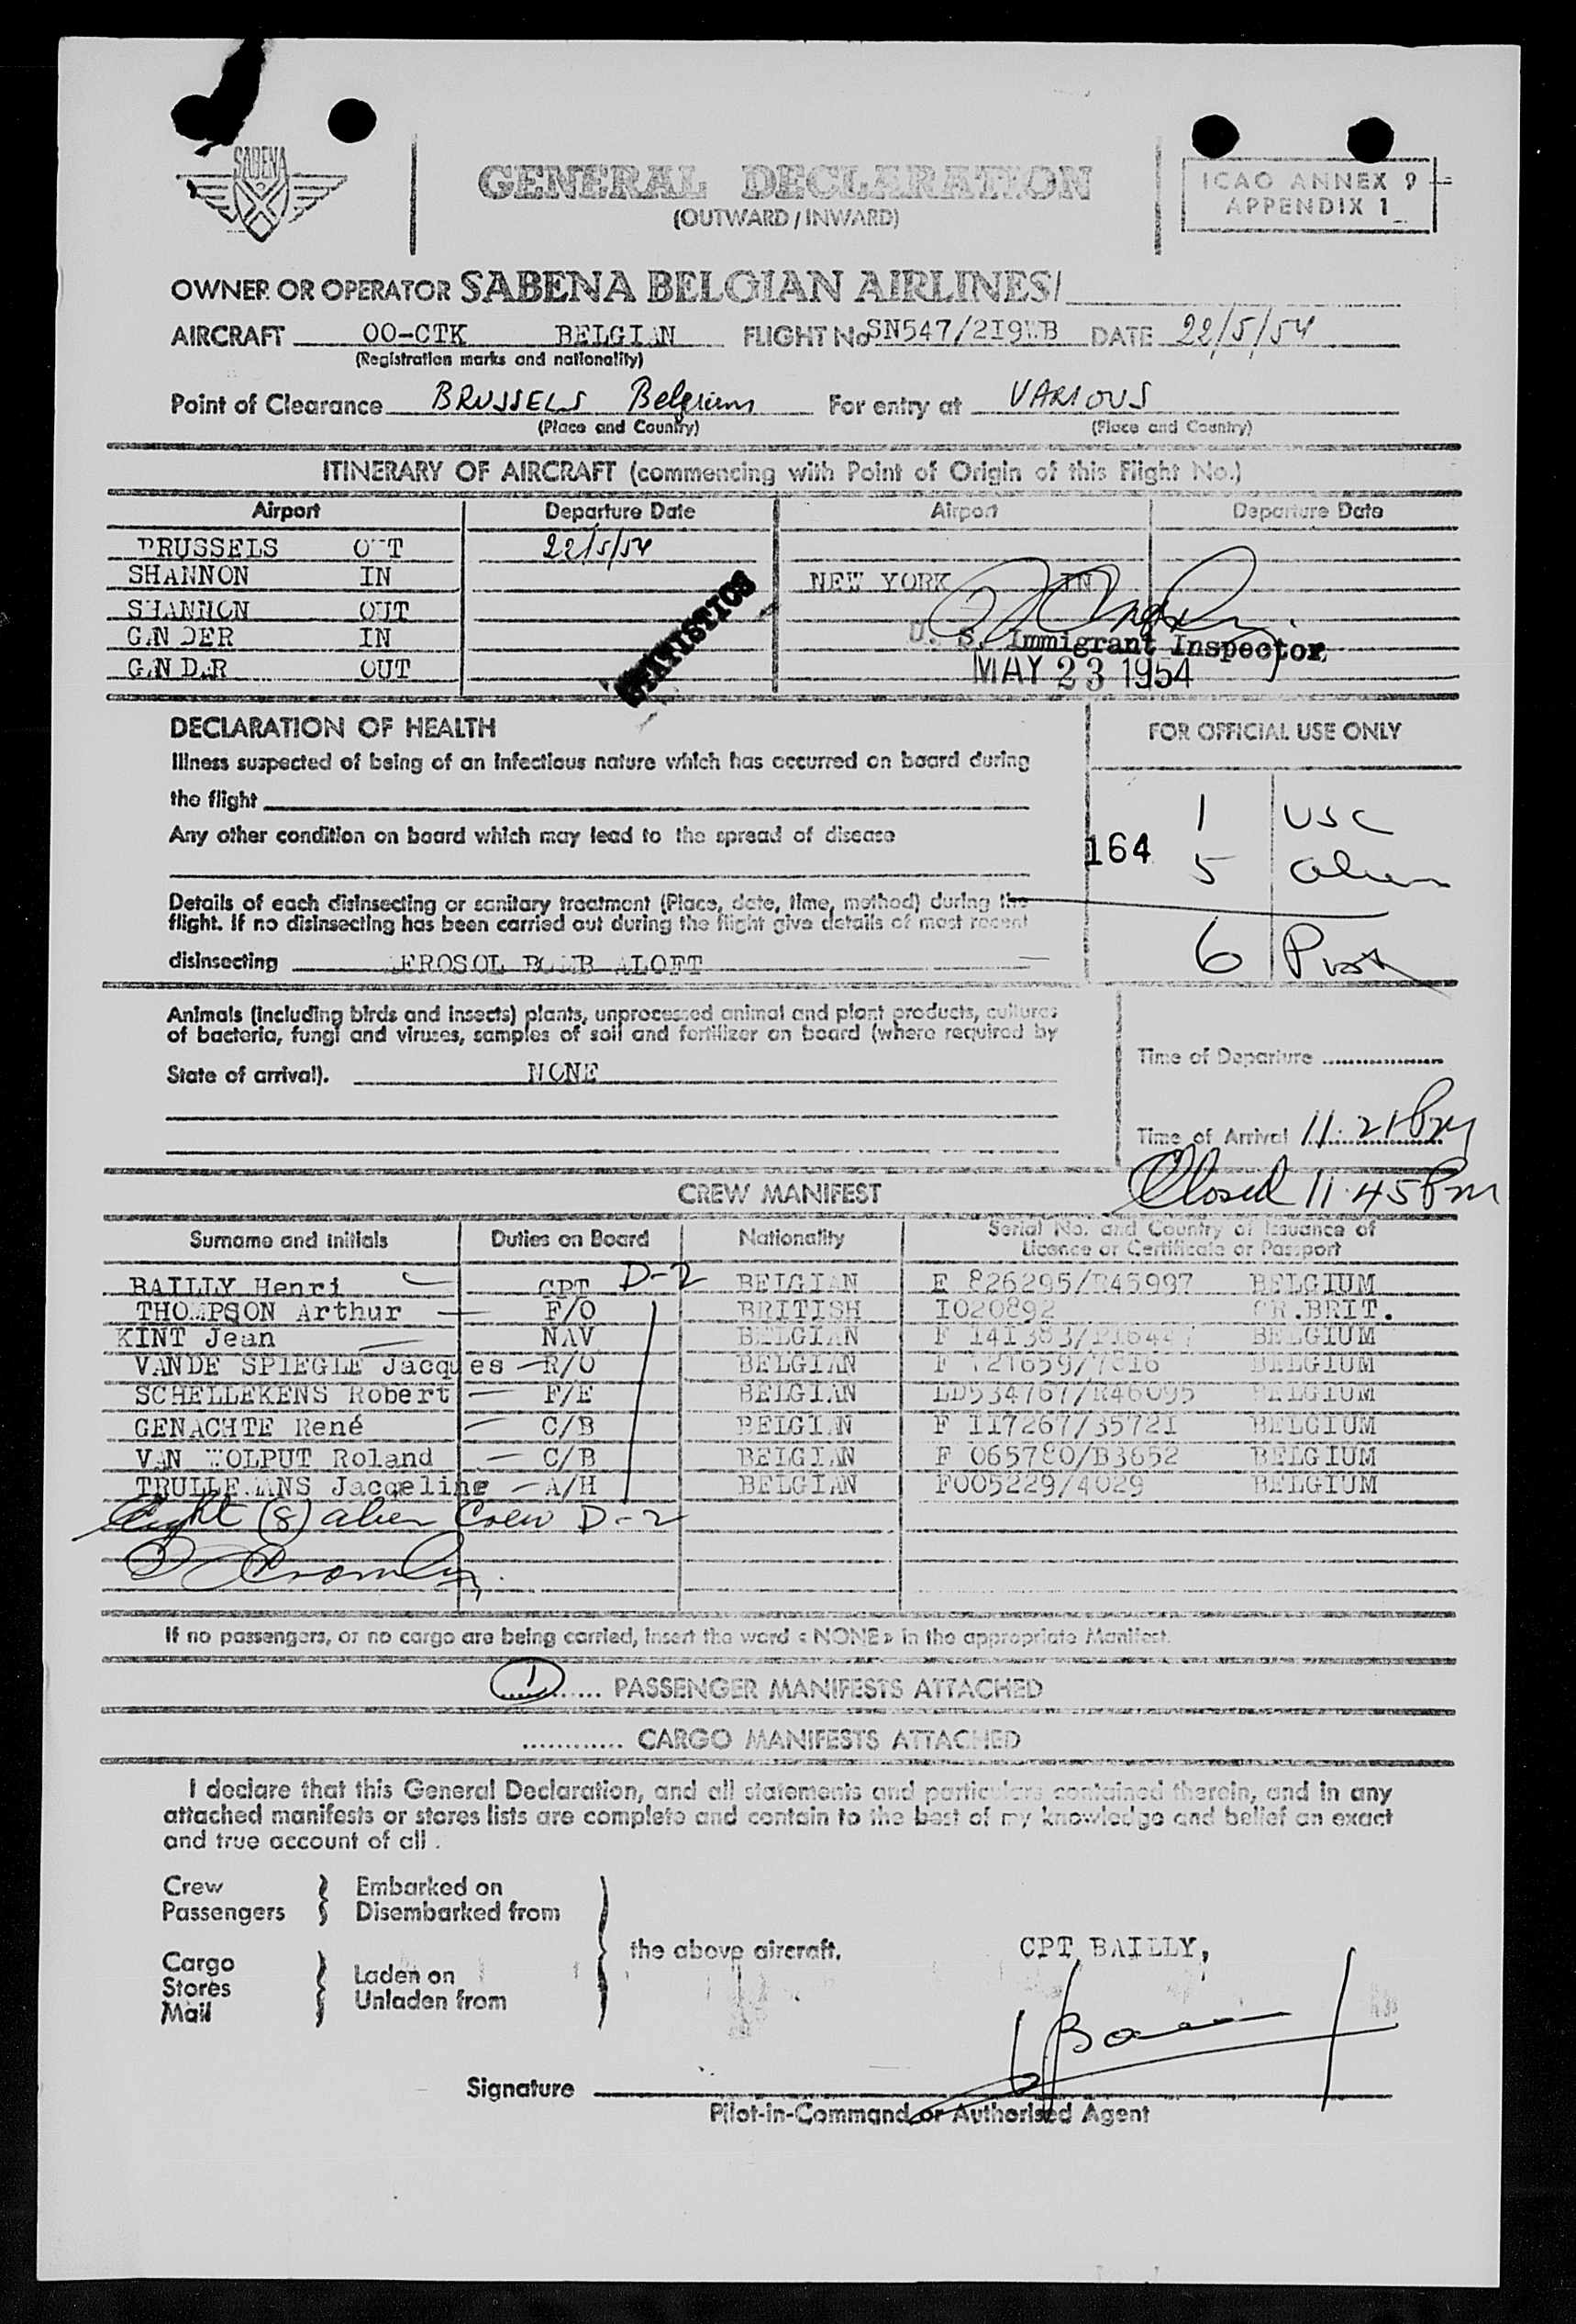 SABENA
GENERAL DECLARATION
(OUTWARD / INWARD)
ICAO ANNEX 9
APPENDIX 1
OWNER OR OPERATOR SABENA BELGIAN AIRLINES/
AIRCRAFT OO-CTK BELGIAN FLIGHT No SN547/219WB DATE 22/5/54
(Registration marks and nationality)
Point of Clearance BRUSSELS Belgium For entry at VARIOUS
(Place and Country) (Place and Country)
ITINERARY OF AIRCRAFT (commencing with Point of Origin of this Flight No.)
Airport Departure Date Airport Departure Date
BRUSSELS OUT 22/5/54
SHANNON IN NEW YORK IN
SHANNON OUT
GANDER IN
GANDER OUT
STATISTICS
U. S. Immigrant Inspector
MAY 23 1954
DECLARATION OF HEALTH
FOR OFFICIAL USE ONLY
Illness suspected of being of an infectious nature which has occurred on board during
the flight
Any other condition on board which may lead to the spread of disease
1 USC
164
5 Alien
Details of each disinsecting or sanitary treatment (Place, date, time, method) during the
flight. If no disinsecting has been carried out during the flight give details of most recent
disinsecting AEROSOL BOMB ALOFT
6
Animals (including birds and insects) plants, unprocessed animal and plant products, cultures
of bacteria, fungi and viruses, samples of soil and fertilizer on board (where required by
State of arrival). NONE
Time of Departure ...................
Time of Arrival 11.21 Pm
Closed 11.45 Pm
CREW MANIFEST
Surname and Initials Duties on Board Nationality Serial No. and Country of Issuance of
Licence or Certificate or Passport
BAILLY Henri CPT D-2 BELGIAN E 826295/R45997 BELGIUM
THOMPSON Arthur F/O BRITISH I020892 GR.BRIT.
KINT Jean NAV BELGIAN BELGIUM
VANDE SPIEGLE Jacques R/O BELGIAN BELGIUM
SCHELLEKENS Robert F/E BELGIAN LD534767/R46095 BELGIUM
GENACHTE René C/B BELGIAN F 117267/35721 BELGIUM
VAN WOLPUT Roland C/B BELGIAN F 065780/B3652 BELGIUM
TRULLEMANS Jacqeline A/H BELGIAN F005229/4029 BELGIUM
Eight (8) alien Crew D-2
If no passengers, or no cargo are being carried, insert the word « NONE » in the appropriate Manifest.
1 ............ PASSENGER MANIFESTS ATTACHED
............ CARGO MANIFESTS ATTACHED
I declare that this General Declaration, and all statements and particulars contained therein, and in any
attached manifests or stores lists are complete and contain to the best of my knowledge and belief an exact
and true account of all .
Crew Embarked on
Passengers Disembarked from
the above aircraft.
CPT BAILLY,
Cargo
Stores Laden on
Mail Unladen from
Signature
Pilot-in-Command or Authorised Agent